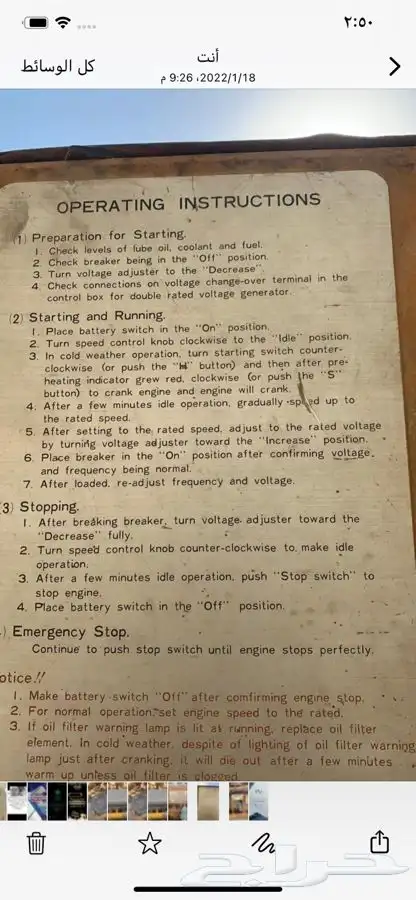 ٢:٥٠
أنت
كل الوسائط
2022/1/18، 9:26 م
OPERATING INSTRUCTIONS
(1) Preparation for Starting.
1. Check levels of lube oil, coolant and fuel.
2. Check breaker being in the "Off" position.
3. Turn voltage adjuster to the "Decrease".
4. Check connections on voltage change-over terminal in the
control box for double rated voltage generator.
(2) Starting and Running.
1. Place battery switch in the "On" position.
2. Turn speed control knob clockwise to the "Idle" position.
3. In cold weather operation, turn starting switch counter-
clockwise (or push the "H" button) and then after pre-
heating indicator grew red, clockwise (or push the "S"
button) to crank engine and engine will crank.
4. After a few minutes idle operation, gradually speed up to
the rated speed.
5. After setting to the rated speed, adjust to the rated voltage
by turning voltage adjuster toward the "Increase" position.
6. Place breaker in the "On" position after confirming voltage
and frequency being normal.
7. After loaded, re-adjust frequency and voltage.
3) Stopping.
1. After breaking breaker, turn voltage adjuster toward the
"Decrease" fully.
2. Turn speed control knob counter-clockwise to make idle
operation.
3. After a few minutes idle operation, push "Stop switch" to
stop engine.
4. Place battery switch in the "Off" position.
) Emergency Stop.
Continue to push stop switch until engine stops perfectly.
otice!!
1. Make battery switch "Off" after comfirming engine stop.
2. For normal operation, set engine speed to the rated.
3. If oil filter warning lamp is lit at running, replace oil filter
element. In cold weather, despite of lighting of oil filter warning
lamp just after cranking, it will die out after a few minutes
warm up unless oil filter is clogged.
حراج